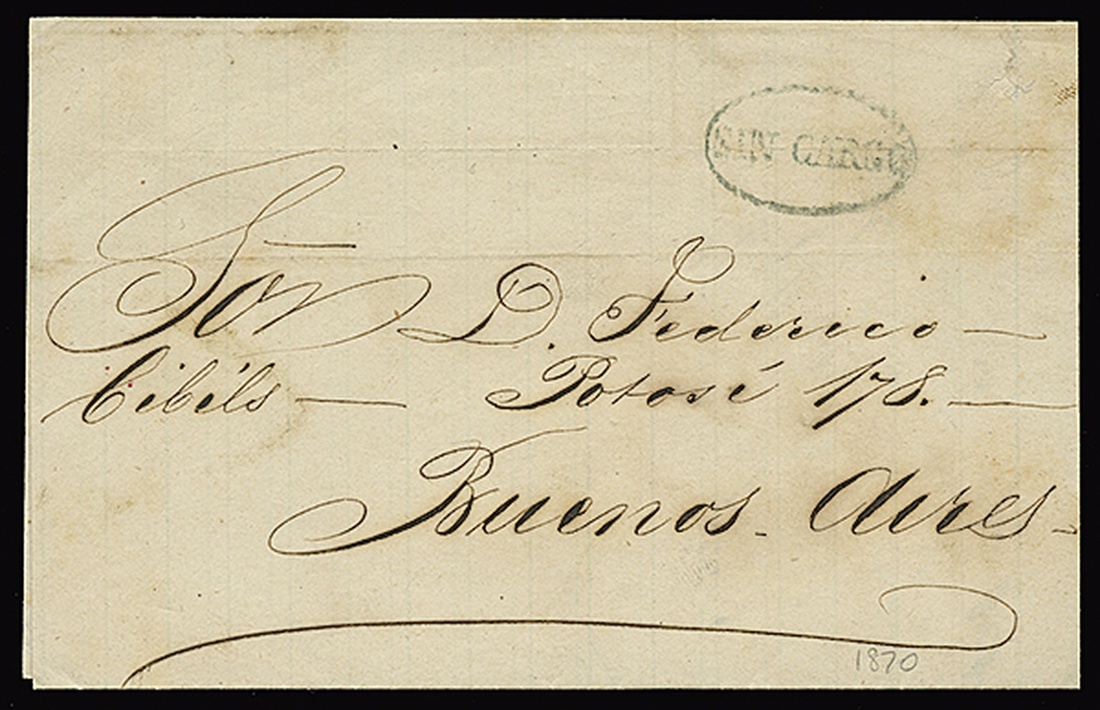 SIN CARGO
Sor D. Federico —
Cibéls — Potosí 178. —
Buenos - Aires -
1870